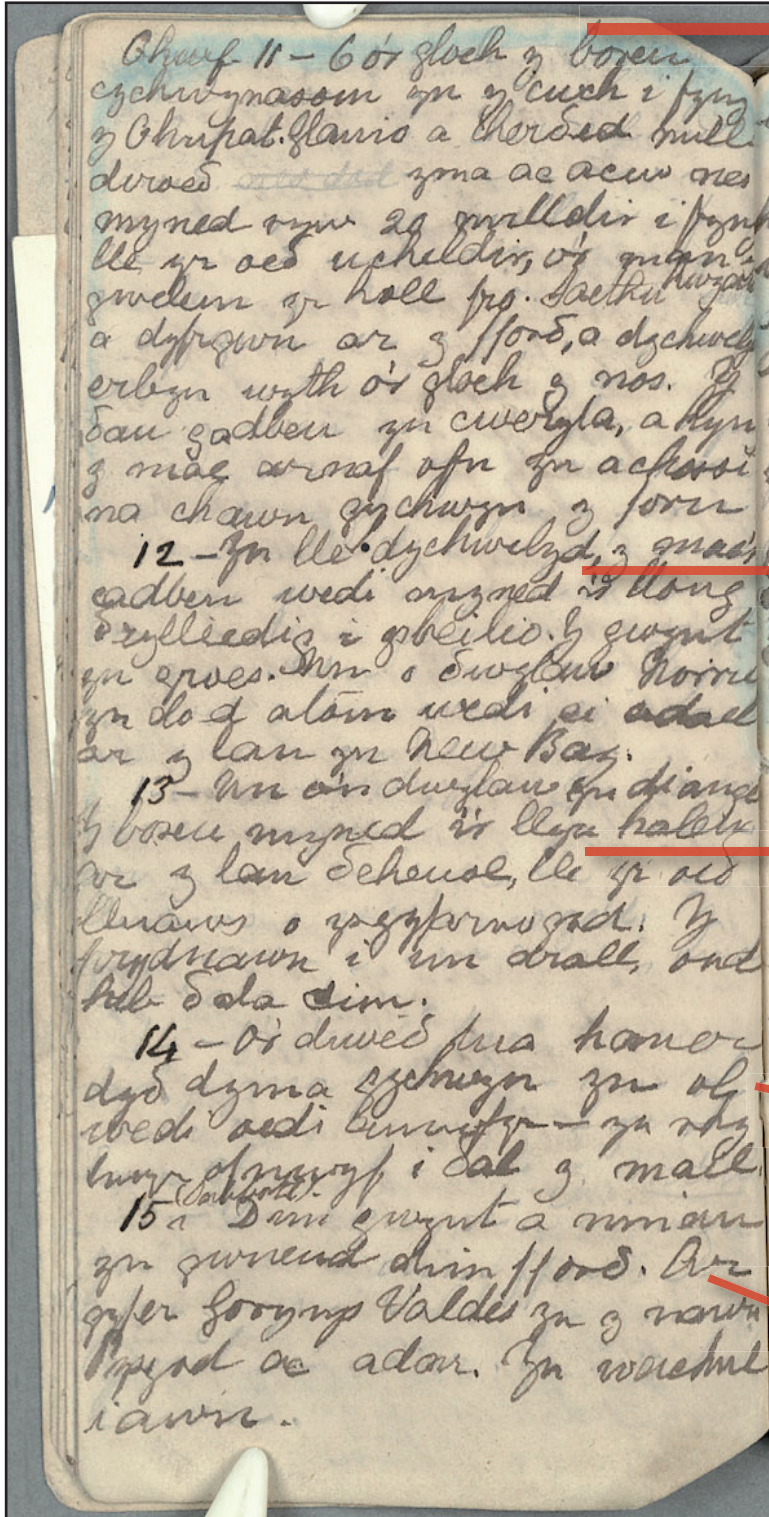 Chwef 11 – 6 o'r gloch y boreu
cychwynasom yn y cwch i fyny
y Chupat. Glanio a cherðed mill
diroeð yma ac acw nes
myned ryw 20 milldir i fyny
lle yr oeð ucheldir, o'r man y
gwelem yr holl fro. Saethu hwyaid
a dyfrgwn ar y fforð, a dychwely
erbyn wyth o'r gloch y nos. Y
ðau gadben yn cweryla, a hyn
y mae arnaf ofn yn achosi
na chawn gychwyn y foru
12 – Yn lle dychwelyd, y mae'r
cadben wedi myned i'r llong
ðrylliedig i ysbeilio. Y gwynt
yn groes. Un o ðwylaw
yn dod atom wedi ei adael
ar y lan yn New Bay.
13 – Un o'n dwylaw yn diange
Y boreu myned i'r llyn halen
ar y lan ðeheuol, lle yr oeð
lluaws o ysgyfarnogod. Y
prydnawn i un arall, ond
heb ðala dim.
14 – O'r diweð tua haner
dyð dyma gychwyn yn ol
wedi oedi – yn rhy
hwyr ofnwyf i ðal y mail.
15 (Sabboth). Dim gwynt a ninau
yn gwneud dim fforð. Ar
gyfer Gorynys Valdes yn y nawn
Pysgod ac adar. Yn
iawn.